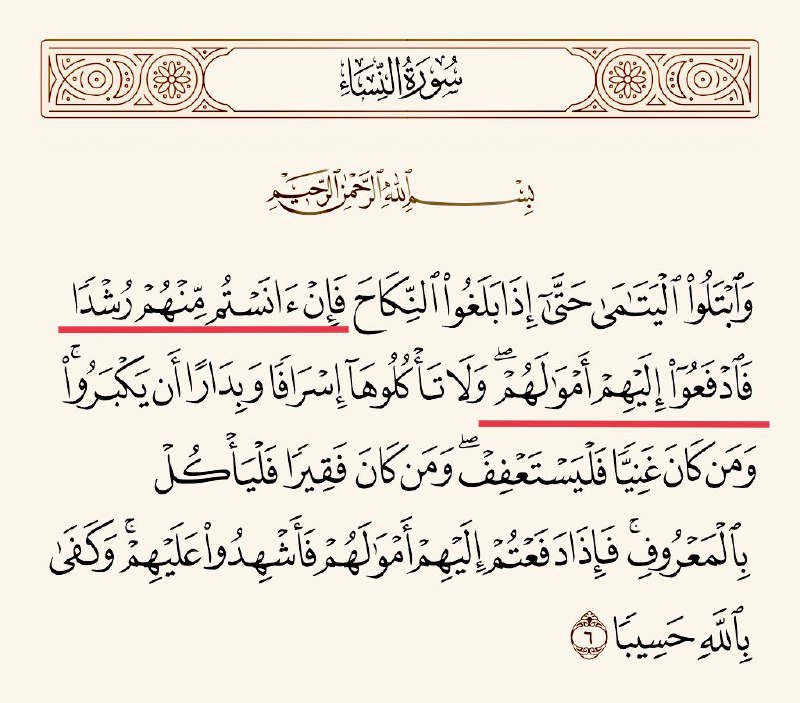 سُورَةُ النِّسَاءِ
بِسْمِ ٱللَّهِ ٱلرَّحْمَٰنِ ٱلرَّحِيمِ
وَٱبْتَلُوا۟ ٱلْيَتَٰمَىٰ حَتَّىٰٓ إِذَا بَلَغُوا۟ ٱلنِّكَاحَ فَإِنْ ءَانَسْتُم مِّنْهُمْ رُشْدًا
فَٱدْفَعُوٓا۟ إِلَيْهِمْ أَمْوَٰلَهُمْ ۖ وَلَا تَأْكُلُوهَآ إِسْرَافًا وَبِدَارًا أَن يَكْبَرُوا۟ ۚ
وَمَن كَانَ غَنِيًّا فَلْيَسْتَعْفِفْ ۖ وَمَن كَانَ فَقِيرًا فَلْيَأْكُلْ
بِٱلْمَعْرُوفِ ۚ فَإِذَا دَفَعْتُمْ إِلَيْهِمْ أَمْوَٰلَهُمْ فَأَشْهِدُوا۟ عَلَيْهِمْ ۚ وَكَفَىٰ
بِٱللَّهِ حَسِيبًا ٦